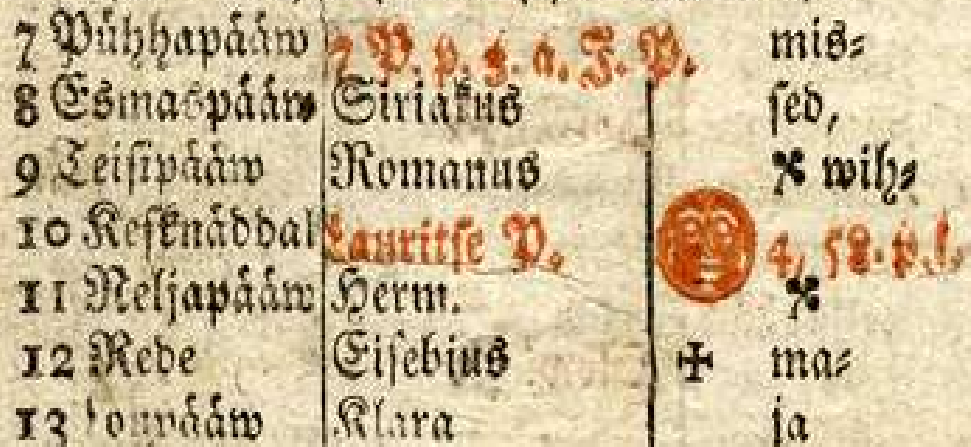 7 Pühhapääw 7 P. p. 3. a. J. P. mis⸗
8 Esmaspääw Siriakus sed,
9 Teisipääw Romanus wih⸗
10 Kesknäddal Lauritse P. 4, 58. p. l.
11 Neljapääw Herm.
12 Rede Eisebius ✠ ma⸗
13 Loupääw Klara ja